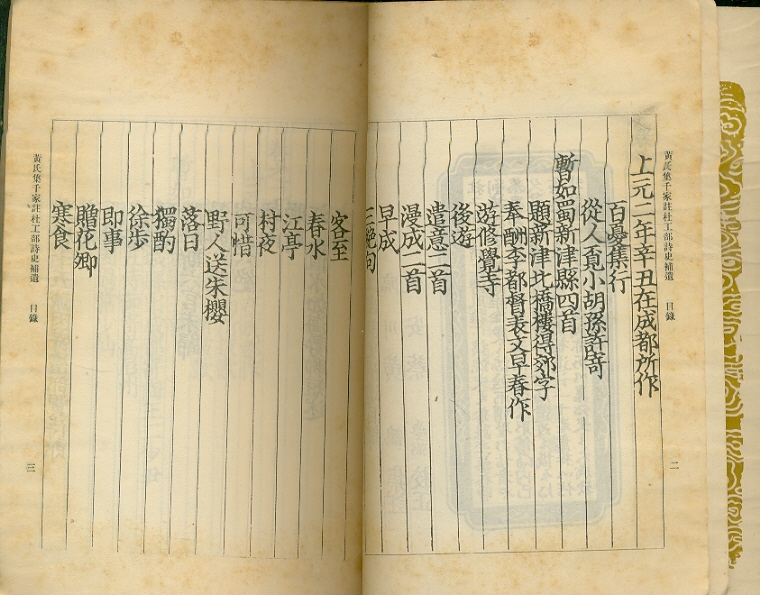 黃氏集千家註杜工部詩史補遺 目錄 二
上元二年辛丑在成都所作
百憂集行
從人覓小胡孫許寄
暫如蜀新津縣四首
題新津北橋樓得郊字
奉酬李都督表文早春作
遊修覺寺
後遊
遣意二首
漫成二首
早成
三絶句
客至
春水
江亭
村夜
可惜
野人送朱櫻
落日
獨酌
徐步
即事
贈花卿
寒食
黃氏集千家註杜工部詩史補遺 目錄 三